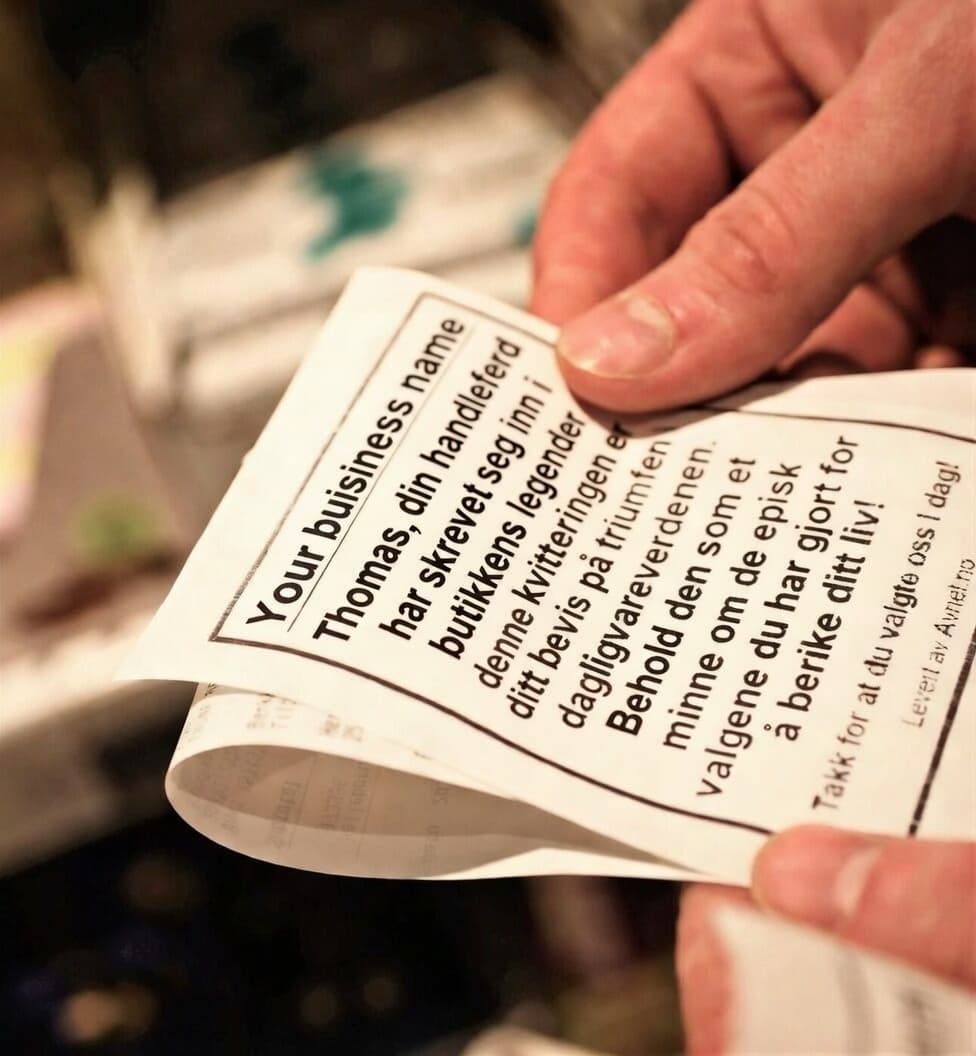 Your buisiness name
Thomas, din handleferd
har skrevet seg inn i
butikkens legender
denne kvitteringen er
ditt bevis på triumfen i
dagligvareverdenen.
Behold den som et
minne om de episk
valgene du har gjort for
å berike ditt liv!
Takk for at du valgte oss I dag!
Levert av Avnet.no